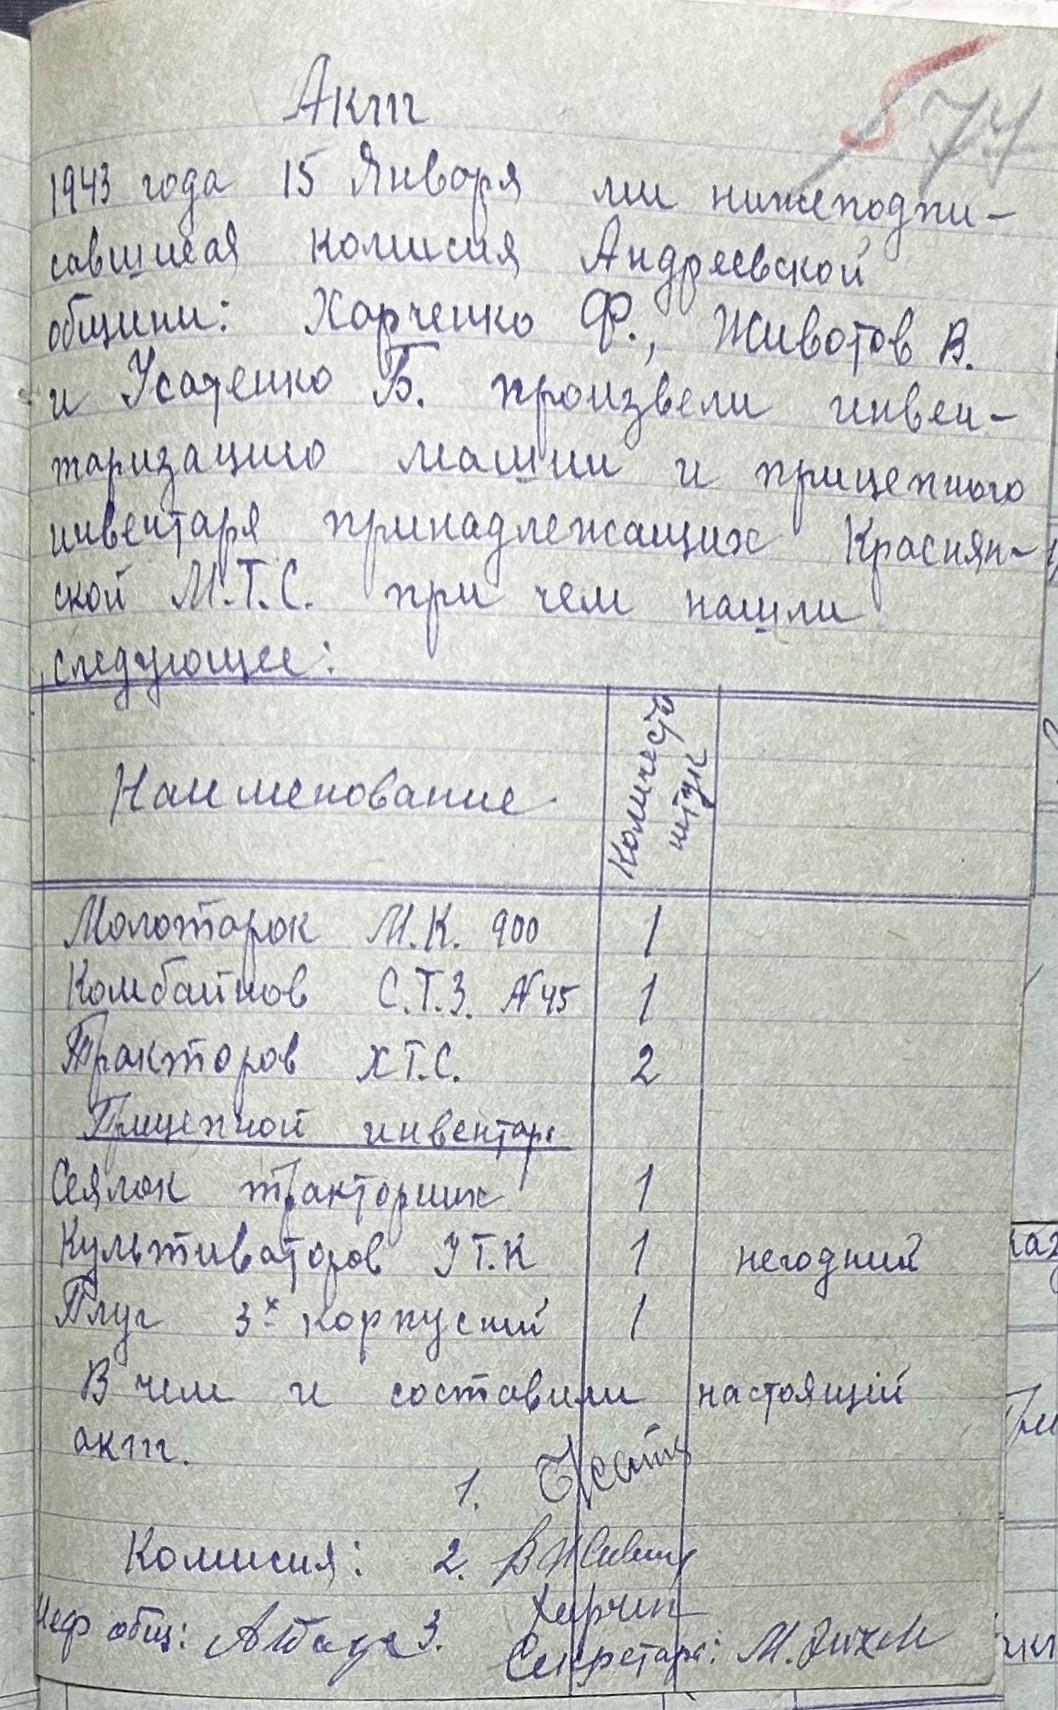 5 74
Акт
1943 года 15 Января ми нижеподпи-
савшиеся комисия Андреевской
общини: Харченко Ф., Животов В.
и Усатенко Б. произвели инвен-
таризацию машин и прицепного
инвентаря принадлежащих Краснян-
ской М.Т.С. при чем нашли
следующее:
Наименование
Количеств
штук
Молотарок М.К. 900 1
Комбайнов С.Т.З. №45 1
Тракторов Х.Т.С. 2
Прицепной инвентарь
Сеялок тракторних 1
Культиваторов У.Т.К 1 негодний
Плуг 3х корпусний 1
В чем и составили настоящій
акт.
1.
Комисия: 2.
Харчен
общ: 3.
Секретарь: М.